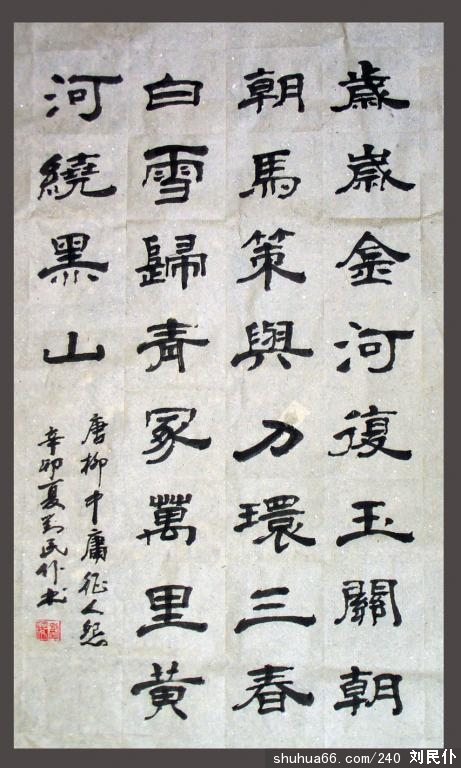 歲歲金河復玉關朝
朝馬策與刀環三春
白雪歸青冢萬里黃
河繞黑山
唐柳中庸征人怨
辛卯夏刘民仆书
shuhua66.com/240 刘民仆